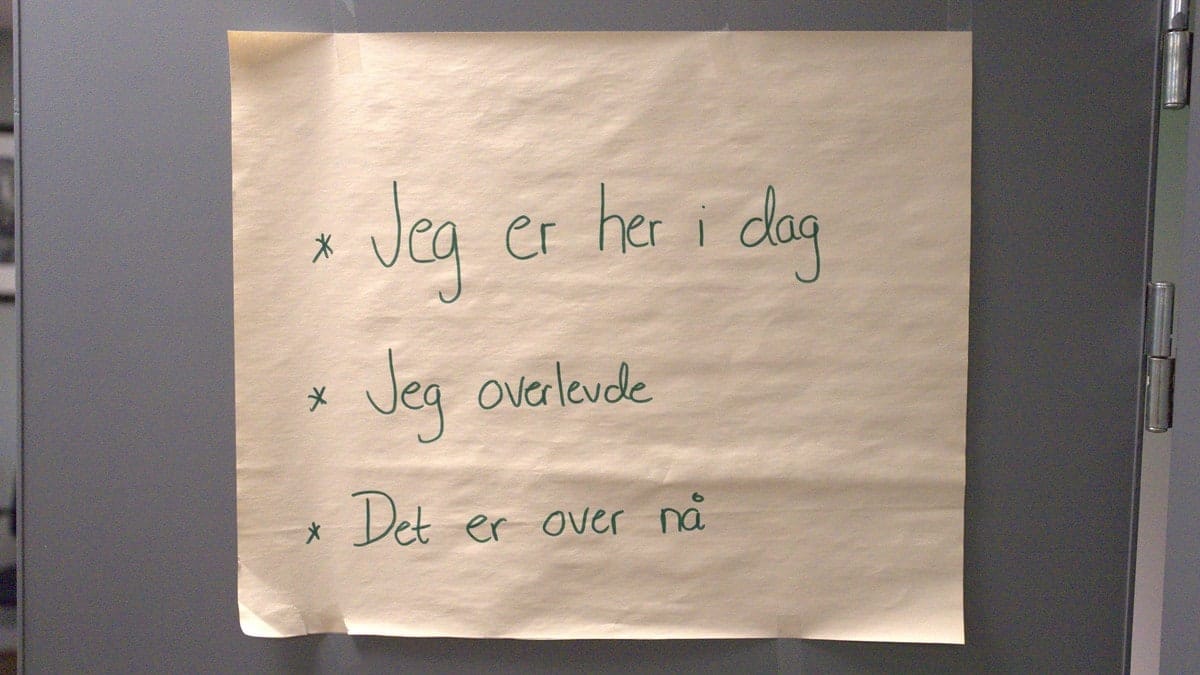 * Jeg er her i dag
* Jeg overlevde
* Det er over nå